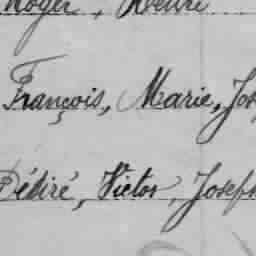 Roger, Henri
François, Marie, Jos
Désiré, Victor, Joseph